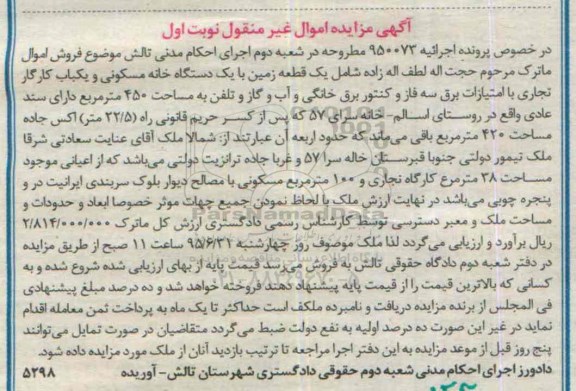 آگهی مزایده اموال غیر منقول نوبت اول
در خصوص پرونده اجرائیه ۹۵۰۰۷۳ مطروحه در شعبه دوم اجرای احکام مدنی تالش موضوع فروش اموال
ماترک مرحوم حجت اله لطف اله زاده شامل یک قطعه زمین با یک دستگاه خانه مسکونی و یکباب کارگار
تجاری با امتیازات برق سه فاز و کنتور برق خانگی و آب و گاز و تلفن به مساحت ۴۵۰ مترمربع دارای سند
عادی واقع در روستای اسالم- خانه سرای ۵۷ که پس از کسر حریم قانونی راه (۲۲/۵ متر) اکس جاده
مساحت ۴۲۰ مترمربع باقی می‌ماند که حدود اربعه آن عبارتند از: شمالا ملک آقای عنایت سعادتی شرقا
ملک تیمور دولتی جنوبا قبرستان خاله سرا ۵۷ و غربا جاده ترانزیت دولتی می‌باشد که از اعیانی موجود
مساحت ۳۸ مترمربع کارگاه تجاری و ۱۰۰ مترمربع مسکونی با مصالح دیوار بلوک سربندی ایرانیت در و
پنجره چوبی می‌باشد در نهایت ارزش ملک با لحاظ نمودن جمیع جهات موثر خصوصا ابعاد و حدودات و
مساحت ملک و معبر دسترسی توسط کارشناس رسمی دادگستری ارزش کل ماترک ۲/۸۱۴/۰۰۰/۰۰۰
ریال برآورد و ارزیابی می‌گردد لذا ملک موصوف روز چهارشنبه ۹۵/۶/۳۱ ساعت ۱۱ صبح از طریق مزایده
در دفتر شعبه دوم دادگاه حقوقی تالش به فروش می‌رسد قیمت پایه از بهای ارزیابی شده شروع شده و به
کسانی که بالاترین قیمت را از قیمت پایه پیشنهاد دهند فروخته خواهد شد و ده درصد مبلغ پیشنهادی
فی المجلس از برنده مزایده دریافت و نامبرده ملکف است حداکثر تا یک ماه به پرداخت ثمن معامله اقدام
نماید در غیر این صورت ده درصد اولیه به نفع دولت ضبط می‌گردد متقاضیان در صورت تمایل می‌توانند
پنج روز قبل از موعد مزایده به این دفتر اجرا مراجعه تا ترتیب بازدید آنان از ملک مورد مزایده داده شود.
دادورز اجرای احکام مدنی شعبه دوم حقوقی دادگستری شهرستان تالش- آوریده ۵۲۹۸
ParsNamadData